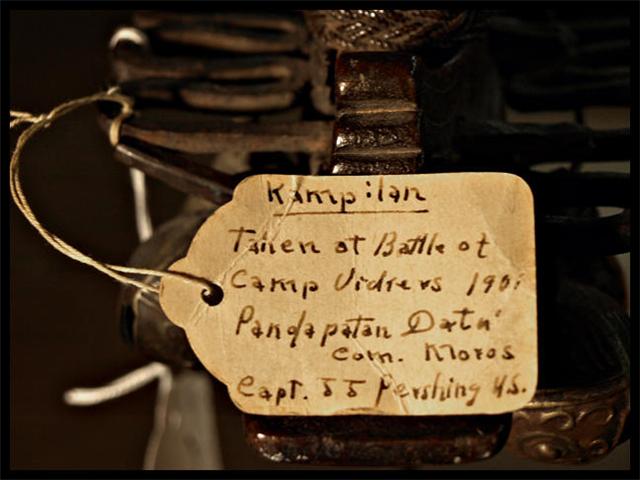 Kampilan
Taken at Battle of
Camp Vidrers 190
Pandapatan Datu'
com. Moros
Capt. JJ Pershing U.S.